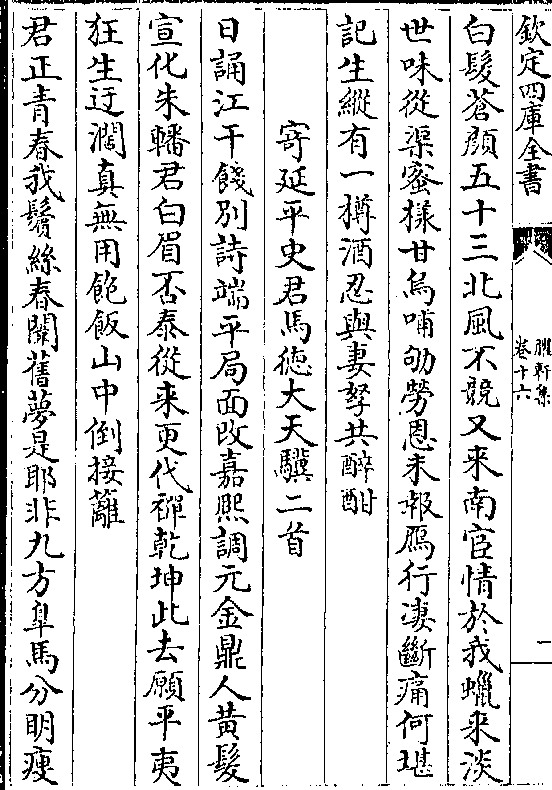 欽定四庫全書
臞軒集
卷十六
一
白髮蒼顔五十三北風不競又来南宦情於我蠟来淡
世味從渠蜜様甘烏哺劬勞恩未報鴈行凄斷痛何堪
記生縱有一樽酒忍與妻孥共醉酣
寄延平史君馬徳大天驥二首
日誦江干餞别詩端平局面改嘉熙調元金鼎人黄髮
宣化朱轓君白眉否泰從来更代禪乾坤此去願平夷
狂生迂濶真無用飽飯山中倒接籬
君正青春我鬢絲春闈舊夢是耶非九方臯馬分明瘦